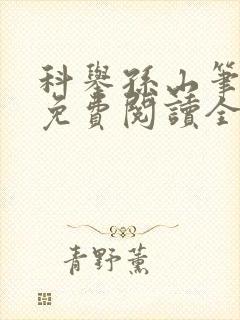 科舉孫山筆
免費閱讀全
青野薰